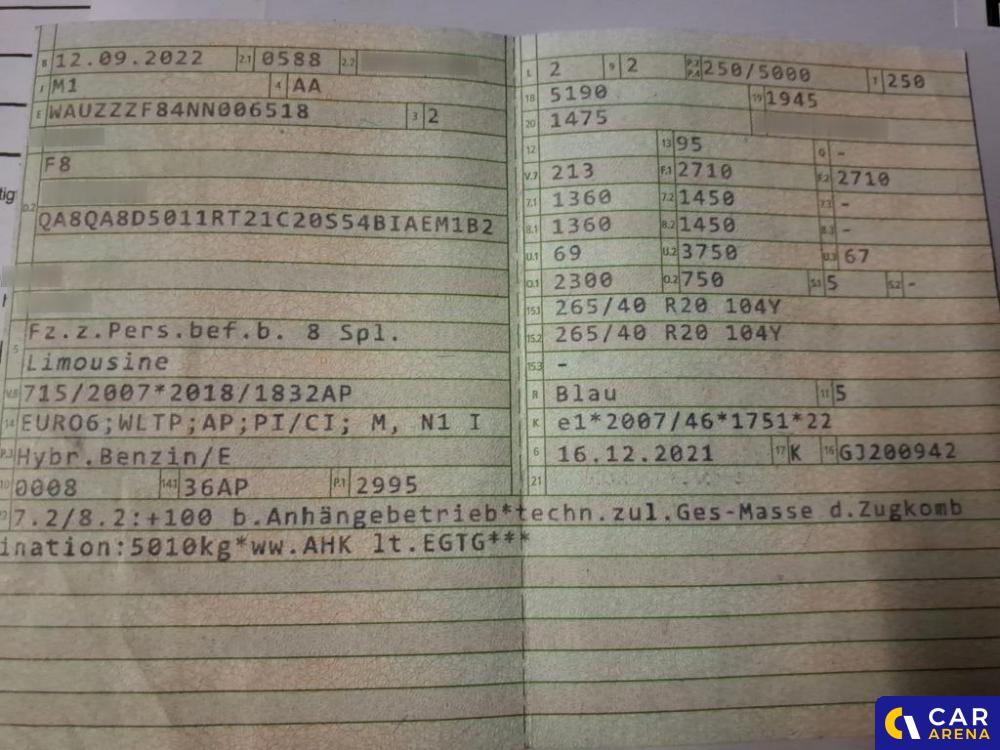 B 12.09.2022 2.1 0588 2.2
J M1 4 AA
E WAUZZZF84NN006518 3 2
F8
D.2
QA8QA8D5011RT21C20S54BIAEM1B2
5 Fz.z.Pers.bef.b. 8 Spl.
Limousine
V.9 715/2007*2018/1832AP
14 EURO6;WLTP;AP;PI/CI; M, N1 I
P.3 Hybr.Benzin/E
10 0008 14.1 36AP P.1 2995
L 2 9 2 P.2 P.4 250/5000 T 250
18 5190 19 1945
20 1475
12 13 95 Q -
V.7 213 F.1 2710 F.2 2710
7.1 1360 7.2 1450 7.3 -
8.1 1360 8.2 1450 8.3 -
U.1 69 U.2 3750 U.3 67
O.1 2300 O.2 750 S.1 5 S.2 -
15.1 265/40 R20 104Y
15.2 265/40 R20 104Y
15.3 -
R Blau 11 5
K e1*2007/46*1751*22
6 16.12.2021 17 K 16 GJ200942
21
7.2/8.2:+100 b.Anhängebetrieb*techn.zul.Ges-Masse d.Zugkomb
ination:5010kg*ww.AHK lt.EGTG***
tig
CAR
ARENA